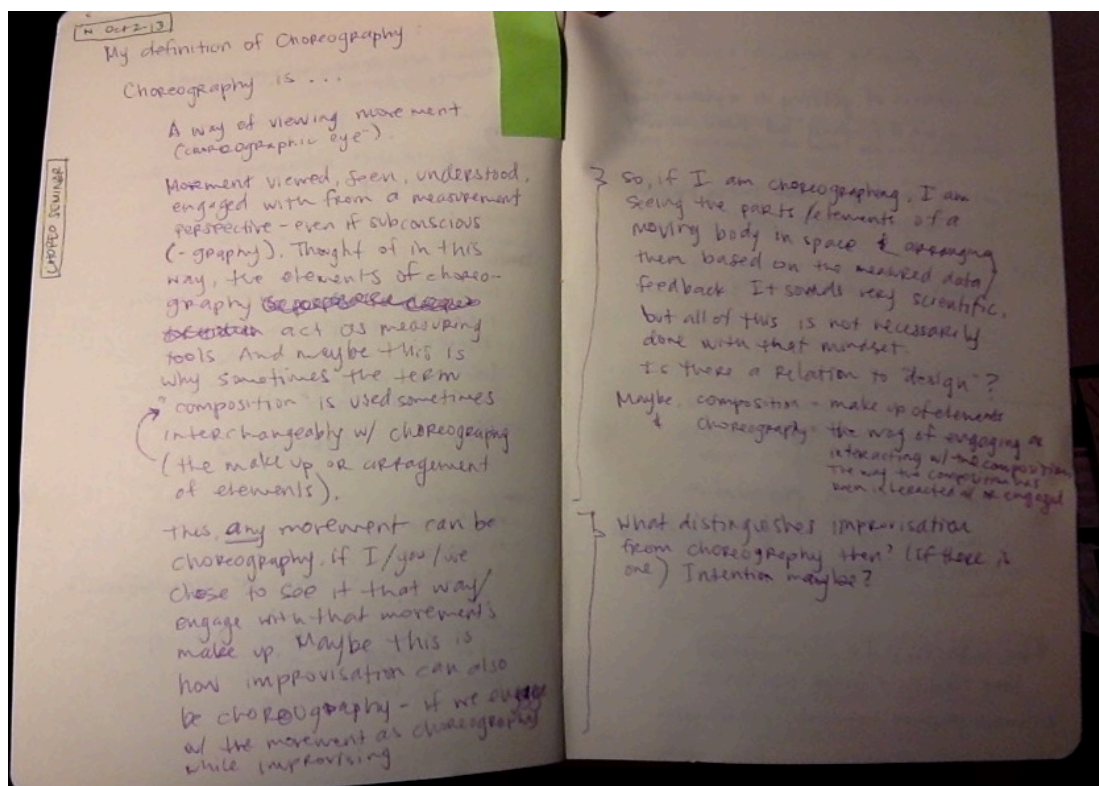 N Oct 2-13
My definition of Choreography
Choreography is ...
A way of viewing movement
(choreographic eye).
CHOREO SEMINAR
Movement viewed, seen, understood,
engaged with from a measurement
perspective - even if subconscious
(-graphy). Thought of in this
way, the elements of choreo-
graphy
act as measuring
tools. And maybe this is
why sometimes the term
"composition" is used sometimes
interchangeably w/ choreography
(the make up or arragement
of elements).
Thus, any movement can be
choreography, if I/you/we
chose to see it that way/
engage with that movement's
make up. Maybe this is
how improvisation can also
be choreography - if we engage
w/ the movement as choreography
while improvising
So, if I am choreographing, I am
seeing the parts/elements of a
moving body in space & arranging
them based on the measured data/
feedback. It sounds very scientific,
but all of this is not necessarily
done with that mindset.
Is there a relation to "design"?
Maybe composition - make up of elements
& choreography - the way of engaging or
interacting w/ the composition,
The way the composition has
been interacted or engaged
What distinguishes improvisation
from choreography then? (if there is
one) Intention maybe?